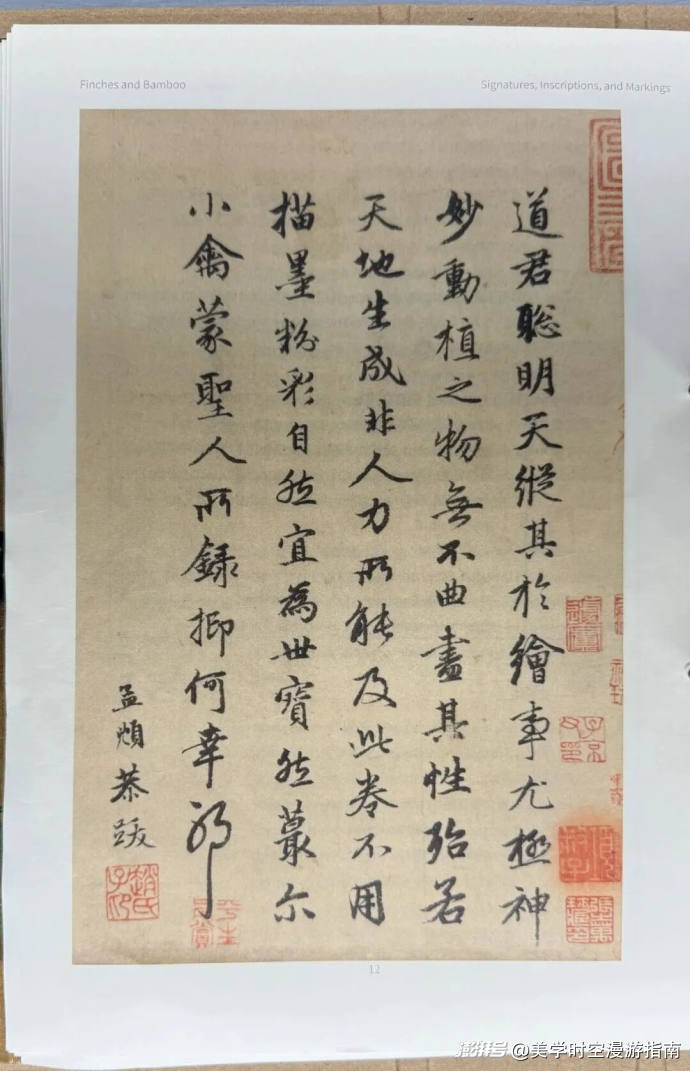 Finches and Bamboo
Signatures, Inscriptions, and Markings
道君聡明天縱其於繪事尤極神
妙動植之物無不曲盡其性殆若
天地生成非人力所能及此卷不用
描墨粉彩自然宜為世寶然蕞尓
小禽蒙聖人所録抑何幸耶
孟頫恭跋
趙氏子昂
12
澎湃号@美学时空漫游指南